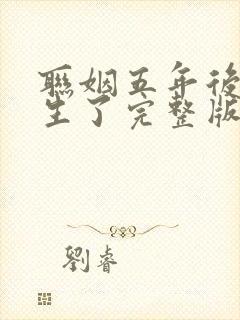 聯姻五年後
生了完整版
劉睿